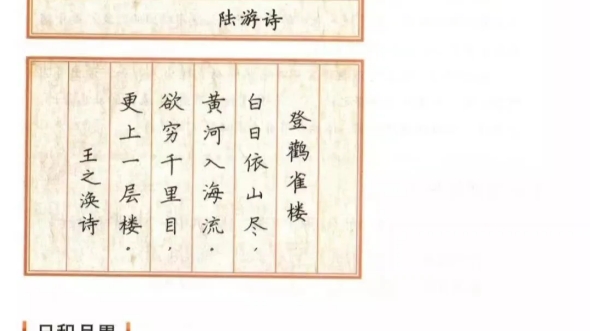 陆游诗
登鹳雀楼
白日依山尽，
黄河入海流。
欲穷千里目，
更上一层楼。
王之涣诗